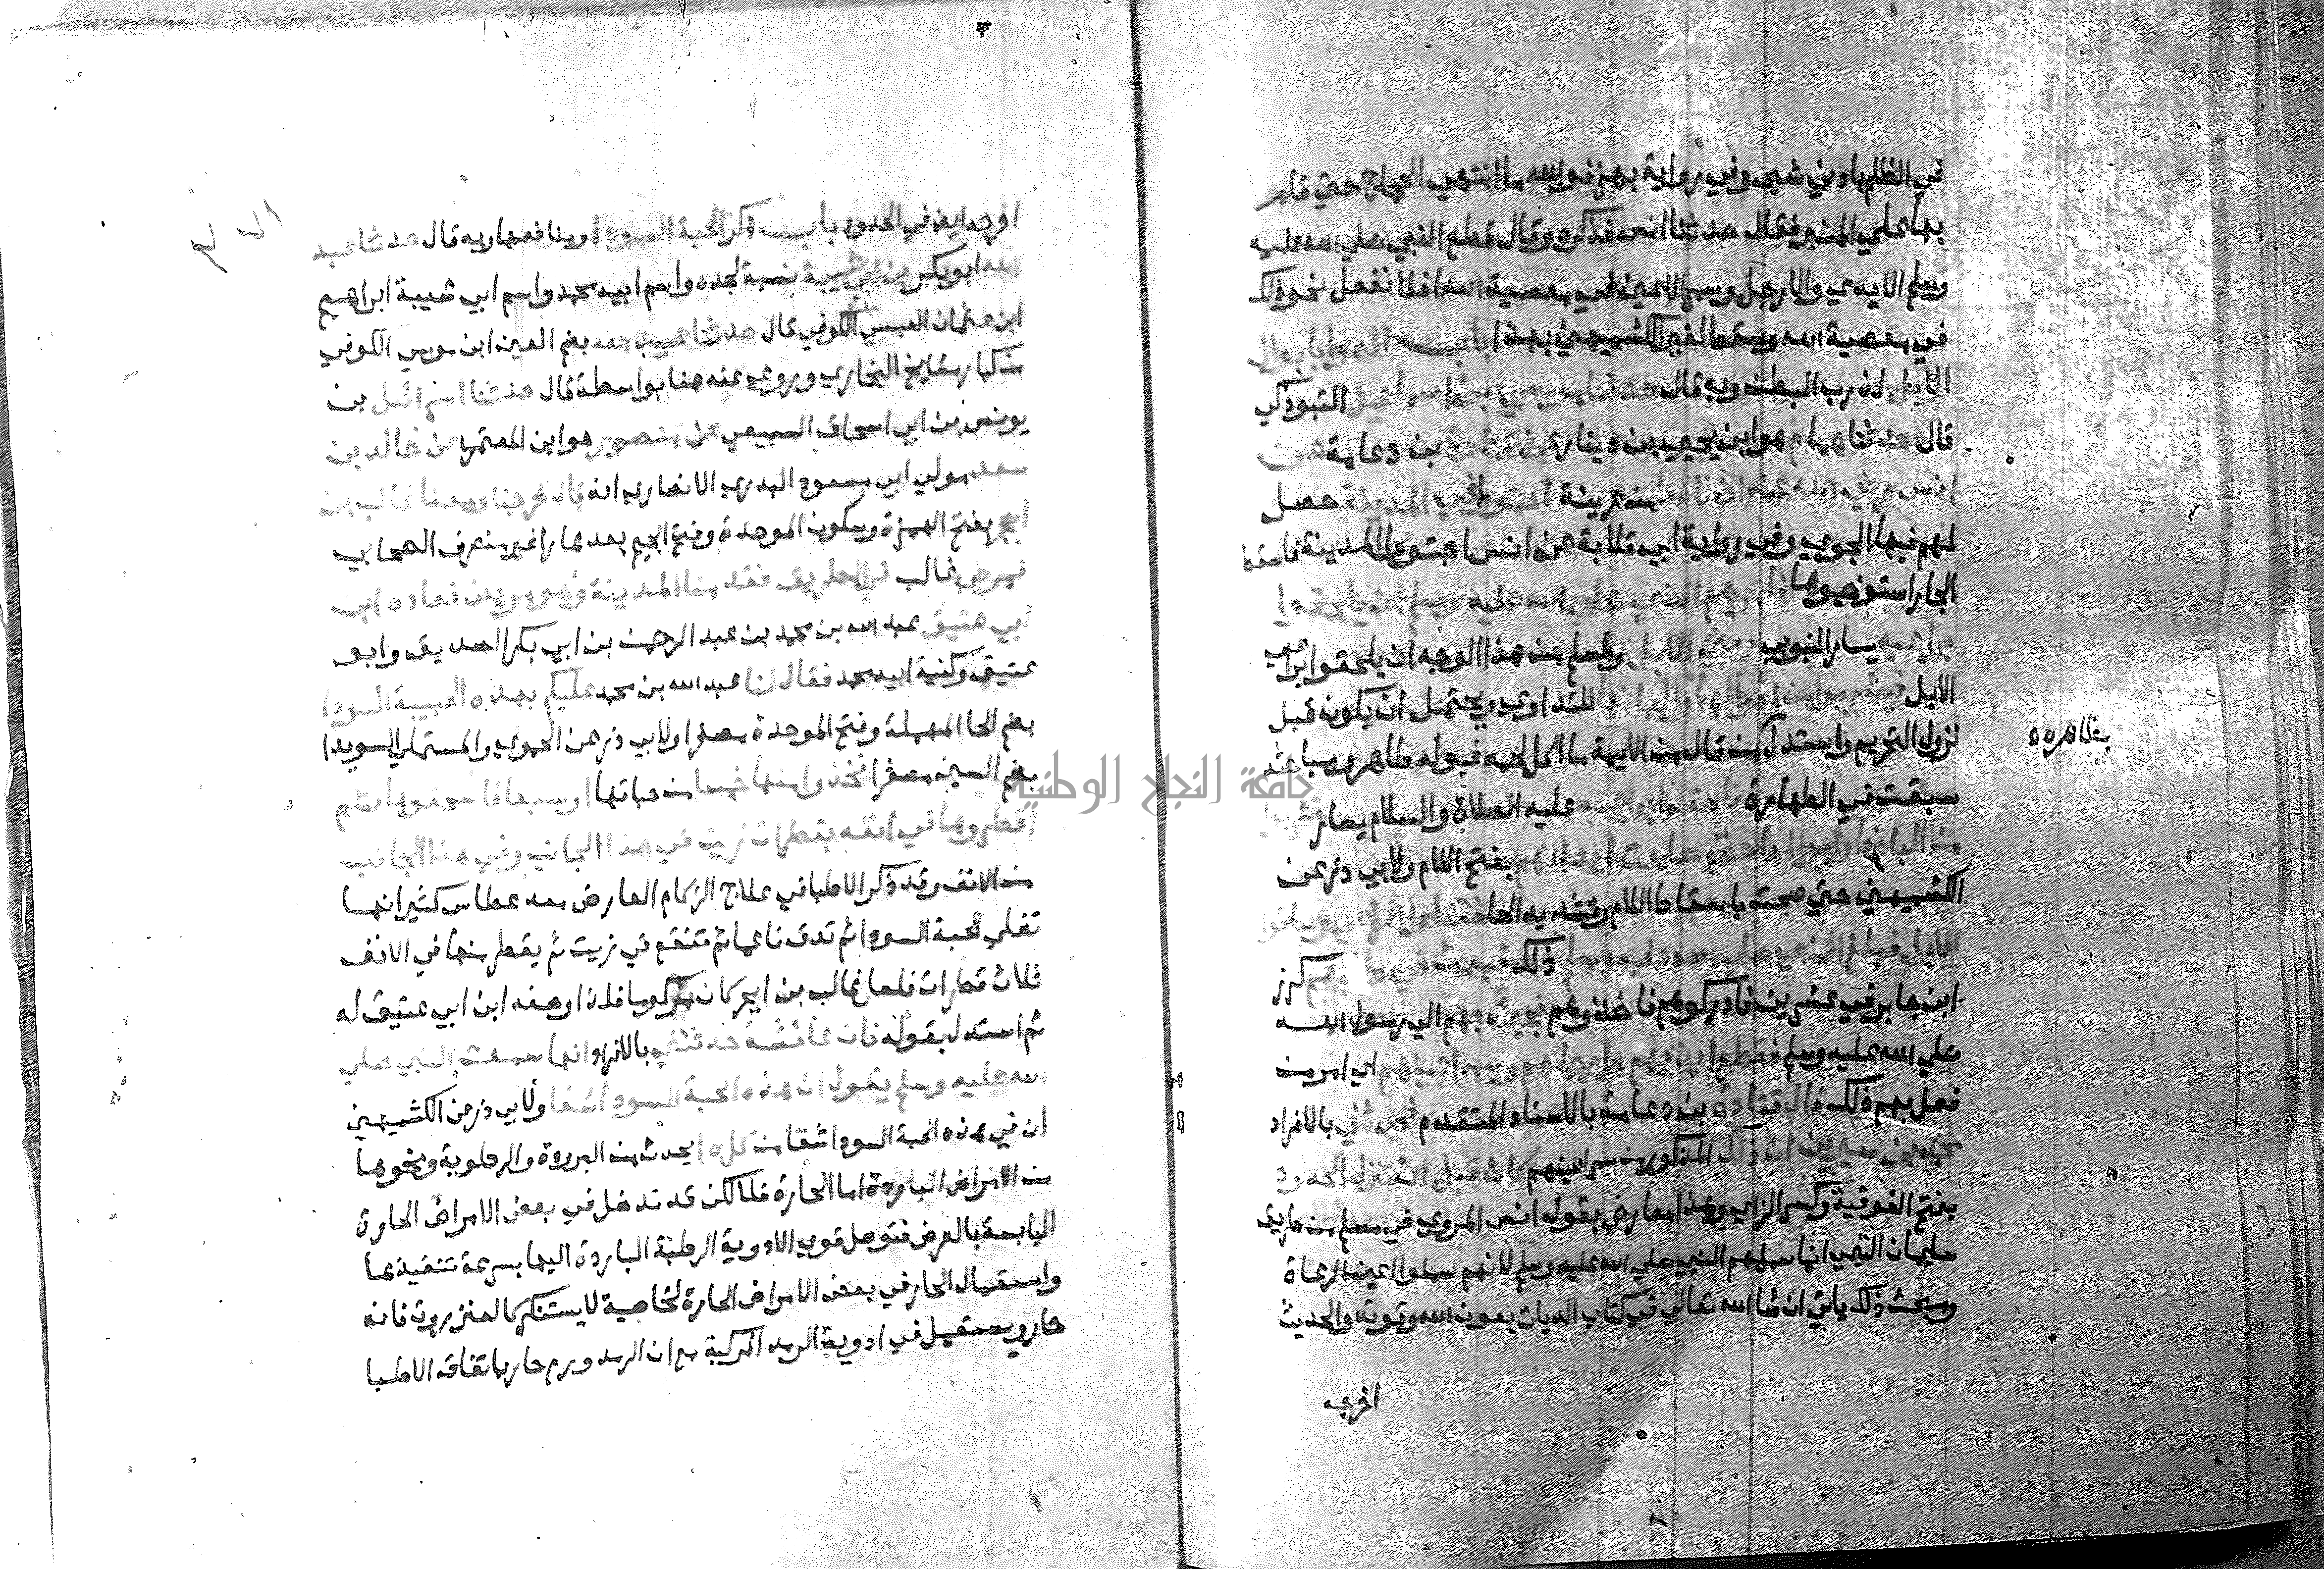 في الظلم بادني شي وفي رواية بهز فوالله ما انتهي الحجاج حتي قام
بها علي المنبر فقال حدثنا انس فذكره وقال قطع النبي صلي الله عليه
وسلم الايدي والارجل وسمر الاعين في معصية الله افلا نفعل نحو ذلك
في معصية الله وسقط لغير الكشميهني بهذا باب الدوا بابوال
الابل لذرب البطن وبه قال حدثنا موسي بن اسماعيل التبوذكي
قال حدثنا همام هو ابن يحيي بن دينار عن قتادة بن دعامة عن
انس رضي الله عنه ان ناسا من عرينة اجتووا في المدينة حصل
لهم فيها الجوي وفي رواية ابي قلابة عن انس اجتووا المدينة
استوخموها فامرهم النبي صلي الله عليه وسلم ان يلحقوا
براعيه يسار النوبي يعني الابل ولمسلم من هذا الوجه ان يلحقوا براعي
الابل فيشربوا من ابوالها والبانها للتداوي ويحتمل ان يكون قبل
نزول التحريم واستدل من قال من الايمة ما اكل لحمه فبوله طاهر ومباحثه
بظاهره
سبقت في الطهارة فلحقوا براعيه عليه الصلاة والسلام يسار فشربوا
من البانها وابوالها حتي صلحت ابدانهم بفتح اللام ولابي ذر عن
الكشميهني حتي صحت باسقاط اللام وتشديد الحا فقتلوا الراعي وساقوا
الابل فبلغ النبي صلي الله عليه وسلم ذلك فبعث في طلبهم كرز
ابن جابر في عشرين فادركوهم فاخذوهم فجيء بهم الي رسول الله
صلي الله عليه وسلم فقطع ايديهم وارجلهم وسمر اعينهم اي امر من
فعل بهم ذلك قال قتادة بن دعامة بالاسناد المتقدم فحدثني بالافراد
محمد بن سيرين ان ذلك المذكور من سمر اعينهم كان قبل ان تنزل الحدود
بفتح الفوقية وكسر الزاي وهذا معارض بقول انس المروي في مسلم من طريق
سليمان التيمي انما سملهم النبي صلي الله عليه وسلم لانهم سملوا اعين الرعاة
ومبحث ذلك ياتي ان شا الله تعالي في كتاب الديات بعون الله وقوته والحديث
اخرجه
اخرجه ايضا في الحدود باب ذكر الحبة السودا ومنافعها وبه قال حدثنا عبد
الله ابو بكر بن ابي شيبة نسبة لجده واسم ابيه محمد واسم ابي شيبة ابراهيم
ابن عثمان العبسي الكوفي قال حدثنا عبيد الله بضم العين ابن موسي الكوفي
من كبار مشايخ البخاري وروي عنه هنا بواسطة قال حدثنا اسرائيل بن
يونس بن ابي اسحاق السبيعي عن منصور هو ابن المعتمر عن خالد بن
سعد مولي ابي مسعود البدري الانصاري انه قال خرجنا ومعنا غالب بن
ابجر بفتح الهمزة وسكون الموحدة وفتح الجيم بعدها را غير منصرف الصحابي
فمرض غالب في الطريق فقدمنا المدينة وهو مريض فعاده ابن
ابي عتيق عبد الله بن محمد بن عبد الرحمن بن ابي بكر الصديق وابو
عتيق كنية ابيه محمد فقال لنا عبد الله بن محمد عليكم بهذه الحبيبة السودا
بضم الحا المهملة وفتح الموحدة مصغرا ولابي ذر عن الحموي والمستملي السويدا
بضم السين مصغرا فخذوا منها خمسا من حباتها او سبعا فاسحقوها ثم
اقطروها في انفه بقطرات زيت في هذا الجانب وفي هذا الجانب
من الانف وقد ذكر الاطبا في علاج الزكام العارض معه عطاس كثير انها
تقلي الحبة السودا ثم تدق ناعما ثم تنقع في زيت ثم يقطر منها في الانف
ثلاث قطرات فلعل غالب بن ابجر كان مزكوما فلذا وصفه ابن ابي عتيق له
ثم استدل بقوله فان عائشة حدثتني بالافراد انها سمعت النبي صلي
الله عليه وسلم يقول ان هذه الحبة السودا شفا ولابي ذر عن الكشميهني
ان في هذه الحبة السودا شفا من كل دا يحدث من البرودة والرطوبة ونحوها
من الامراض الباردة اما الحارة فلا لكن قد تدخل في بعض الامراض الحارة
اليابسة بالعرض فتوصل قوي الادوية الرطبة الباردة اليها بسرعة تنفيذها
واستعمال الحار في بعض الامراض الحارة لخاصية لا يستنكر كالعنزروت فانه
حار ويستعمل في ادوية الرمد المركبة مع ان الرمد ورم حار باتفاق الاطبا
جامعة النجاح الوطنية